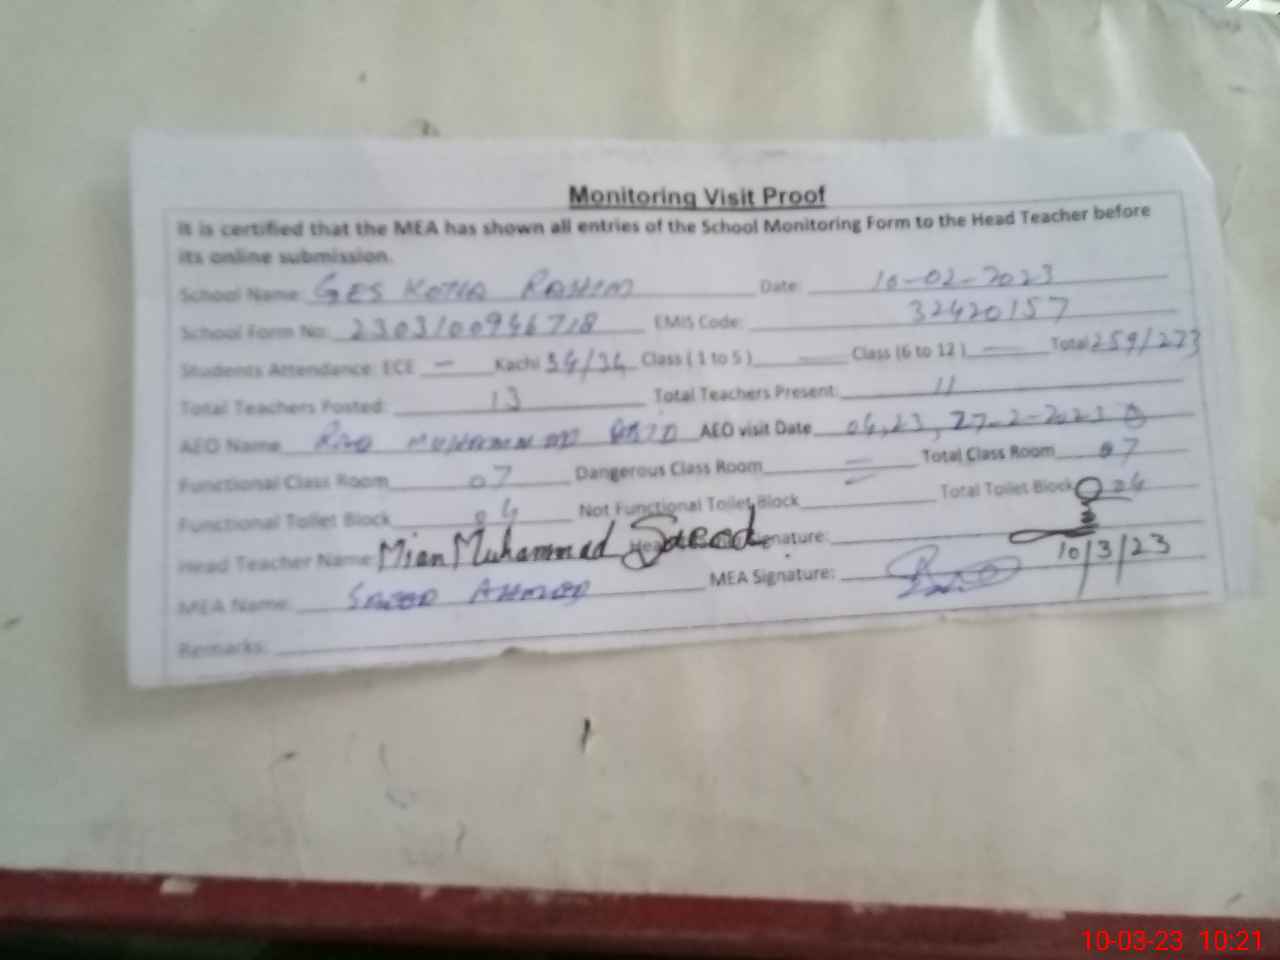 Monitoring Visit Proof
It is certified that the MEA has shown all entries of the School Monitoring Form to the Head Teacher before
its online submission.
School Name: GES KOTLA RAHIM Date: 10-02-2023
School Form No: 2303100946718 EMIS Code: 32420157
Students Attendance: ECE — Kachi 34/34 Class ( 1 to 5 ) — Class (6 to 12 ) — Total 259/273
Total Teachers Posted: 13 Total Teachers Present: 11
AEO Name MUHAMMAD AEO visit Date 04, 23, 27-2-2023
Functional Class Room 07 Dangerous Class Room = Total Class Room 07
Functional Toilet Block 04 Not Functional Toilet Block Total Toilet Block 04
Head Teacher Name: Mian Muhammad Saeed Signature:
10/3/23
MEA Name: AHMAD MEA Signature:
Remarks:
10-03-23 10:21